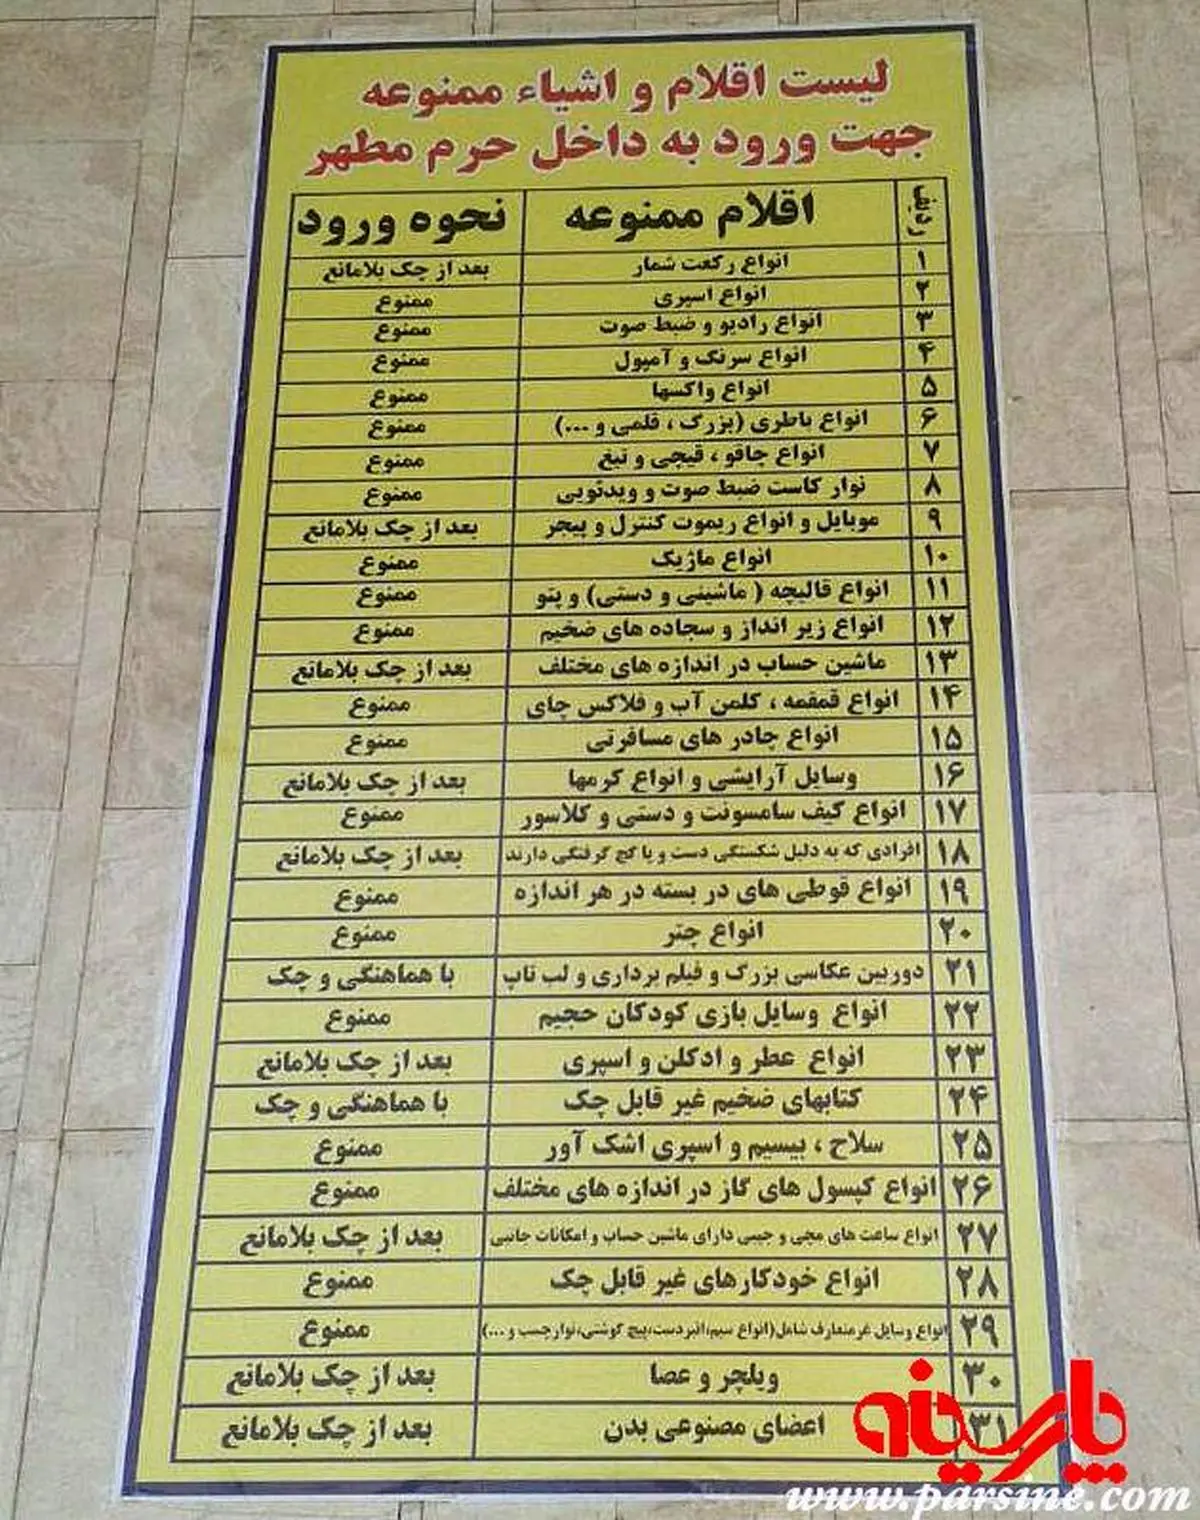 لیست اقلام و اشیاء ممنوعه
جهت ورود به داخل حرم مطهر
ردیف اقلام ممنوعه نحوه ورود
۱ انواع رکعت شمار بعد از چک بلامانع
۲ انواع اسپری ممنوع
۳ انواع رادیو و ضبط صوت ممنوع
۴ انواع سرنگ و آمپول ممنوع
۵ انواع واکسها ممنوع
۶ انواع باطری (بزرگ ، قلمی و ...) ممنوع
۷ انواع چاقو ، قیچی و تیغ ممنوع
۸ نوار کاست ضبط صوت و ویدئویی ممنوع
۹ موبایل و انواع ریموت کنترل و پیجر بعد از چک بلامانع
۱۰ انواع ماژیک ممنوع
۱۱ انواع قالیچه ( ماشینی و دستی) و پتو ممنوع
۱۲ انواع زیر انداز و سجاده های ضخیم ممنوع
۱۳ ماشین حساب در اندازه های مختلف بعد از چک بلامانع
۱۴ انواع قمقمه ، کلمن آب و فلاکس چای ممنوع
۱۵ انواع چادر های مسافرتی ممنوع
۱۶ وسایل آرایشی و انواع کرمها بعد از چک بلامانع
۱۷ انواع کیف سامسونت و دستی و کلاسور ممنوع
۱۸ افرادی که به دلیل شکستگی دست و پا گچ گرفتگی دارند بعد از چک بلامانع
۱۹ انواع قوطی های در بسته در هر اندازه ممنوع
۲۰ انواع چتر ممنوع
۲۱ دوربین عکاسی بزرگ و فیلم برداری و لب تاپ با هماهنگی و چک
۲۲ انواع وسایل بازی کودکان حجیم ممنوع
۲۳ انواع عطر و ادکلن و اسپری بعد از چک بلامانع
۲۴ کتابهای ضخیم غیر قابل چک با هماهنگی و چک
۲۵ سلاح ، بیسیم و اسپری اشک آور ممنوع
۲۶ انواع کپسول های گاز در اندازه های مختلف ممنوع
۲۷ انواع ساعت های مچی و جیبی دارای ماشین حساب و امکانات جانبی بعد از چک بلامانع
۲۸ انواع خودکارهای غیر قابل چک ممنوع
۲۹ انواع وسایل غرمتعارف شامل(انواع سیم،انبردست،پیچ گوشتی،نوارچسب و ...) ممنوع
۳۰ ویلچر و عصا بعد از چک بلامانع
۳۱ اعضای مصنوعی بدن بعد از چک بلامانع
پارسینه
www.parsine.com